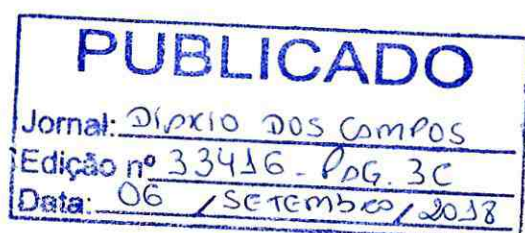 PUBLICADO
Jornal: DIÁRIO DOS CAMPOS
Edição nº 33416 - PÁG. 3C
Data: 06 / SETEMBRO / 2018